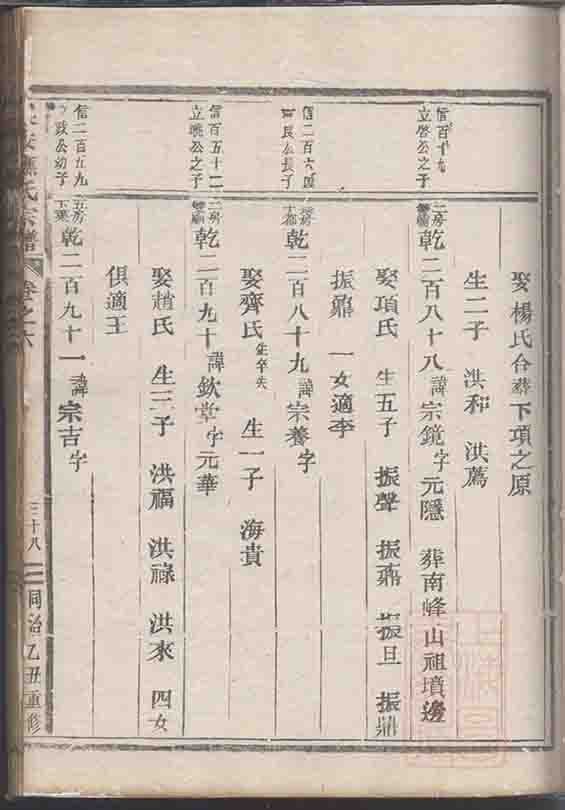 娶楊氏合葬下項之原
生二子 洪和 洪薦
信百十九
立啓公之子
二房
乾二百八十八諱宗鏡字元隱 葬南峰山祖墳邊
娶項氏 生五子 振聲 振鼐 振旦 振鼎
振鼏 一女適李
信二百六
民公長子
乾二百八十九諱宗養字
娶齊氏生卒失 生一子 海貴
信百五十二
立曉公之子
二房
乾二百九十諱欽堂字元華
娶趙氏 生三子 洪福 洪祿 洪來 四女
俱適王
信二百五九
政公幼子
五房
乾二百九十一諱宗吉字
氏宗譜 卷之六 三十八 同治乙丑重修